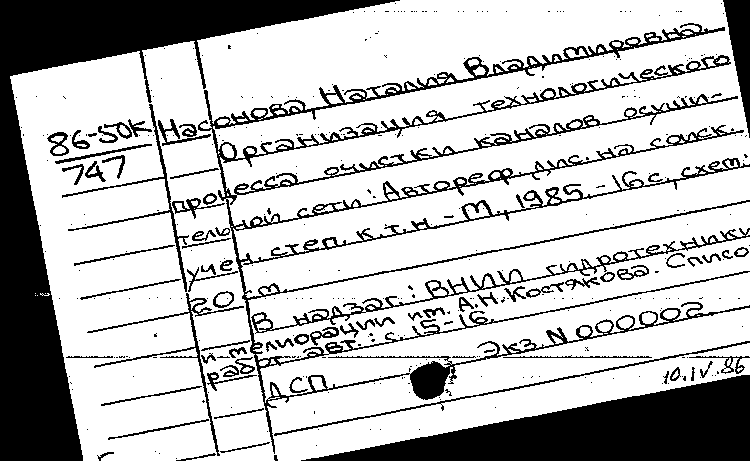 86-50К
747
Насонова, Наталия Владимировна.
Организация технологического
процесса очистки каналов осуши-
тельной сети: Автореф. дис. на соиск.
учен. степ. к.т.н. - М., 1985. - 16 с., схем.;
20 см.
В надзаг.: ВНИИ гидротехники
и мелиорации им. А.Н. Костякова. Списо
работ авт.: с. 15-16.
Экз. N 000002.
ДСП.
10.IV.86